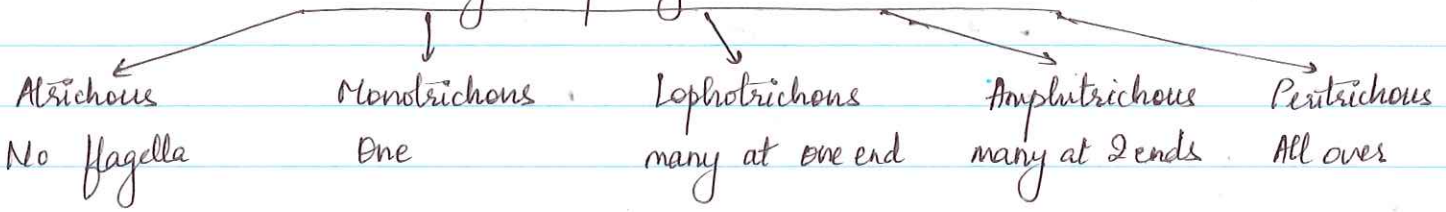 Atrichous Monotrichous Lophotrichous Amphitrichous Peritrichous
No flagella One many at one end many at 2 ends. All over